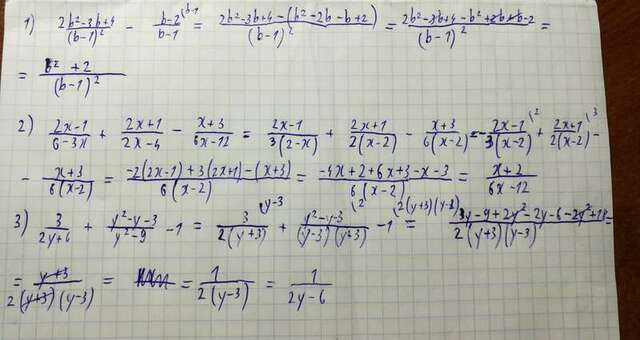 1) (2b²-3b+4)/(b-1)² - (b-2)/(b-1) \b-1 = (2b²-3b+4-(b²-2b-b+2))/(b-1)² = (2b²-3b+4-b²+2b+b-2)/(b-1)² =
= (b²+2)/(b-1)²
2) (2x-1)/(6-3x) + (2x+1)/(2x-4) - (x+3)/(6x-12) = (2x-1)/(3(2-x)) + (2x+1)/(2(x-2)) - (x+3)/(6(x-2)) = -(2x-1)/(3(x-2)) \2 + (2x+1)/(2(x-2)) \3 -
- (x+3)/(6(x-2)) = (-2(2x-1)+3(2x+1)-(x+3))/(6(x-2)) = (-4x+2+6x+3-x-3)/(6(x-2)) = (x+2)/(6x-12)
3) 3/(2y+6) + (y²-y-3)/(y²-9) - 1 = 3/(2(y+3)) \y-3 + (y²-y-3)/((y-3)(y+3)) \2 - 1 \2(y+3)(y-3) = (3y-9+2y²-2y-6-2y²+18)/(2(y+3)(y-3)) =
= (y+3)/(2(y+3)(y-3)) = = 1/(2(y-3)) = 1/(2y-6)